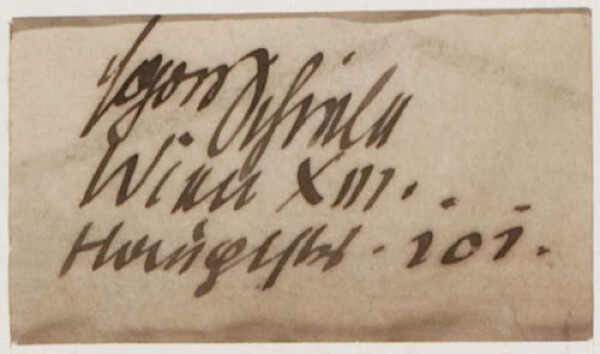 Egon Schiele
Wien XIII.
Hauptstr. 101.